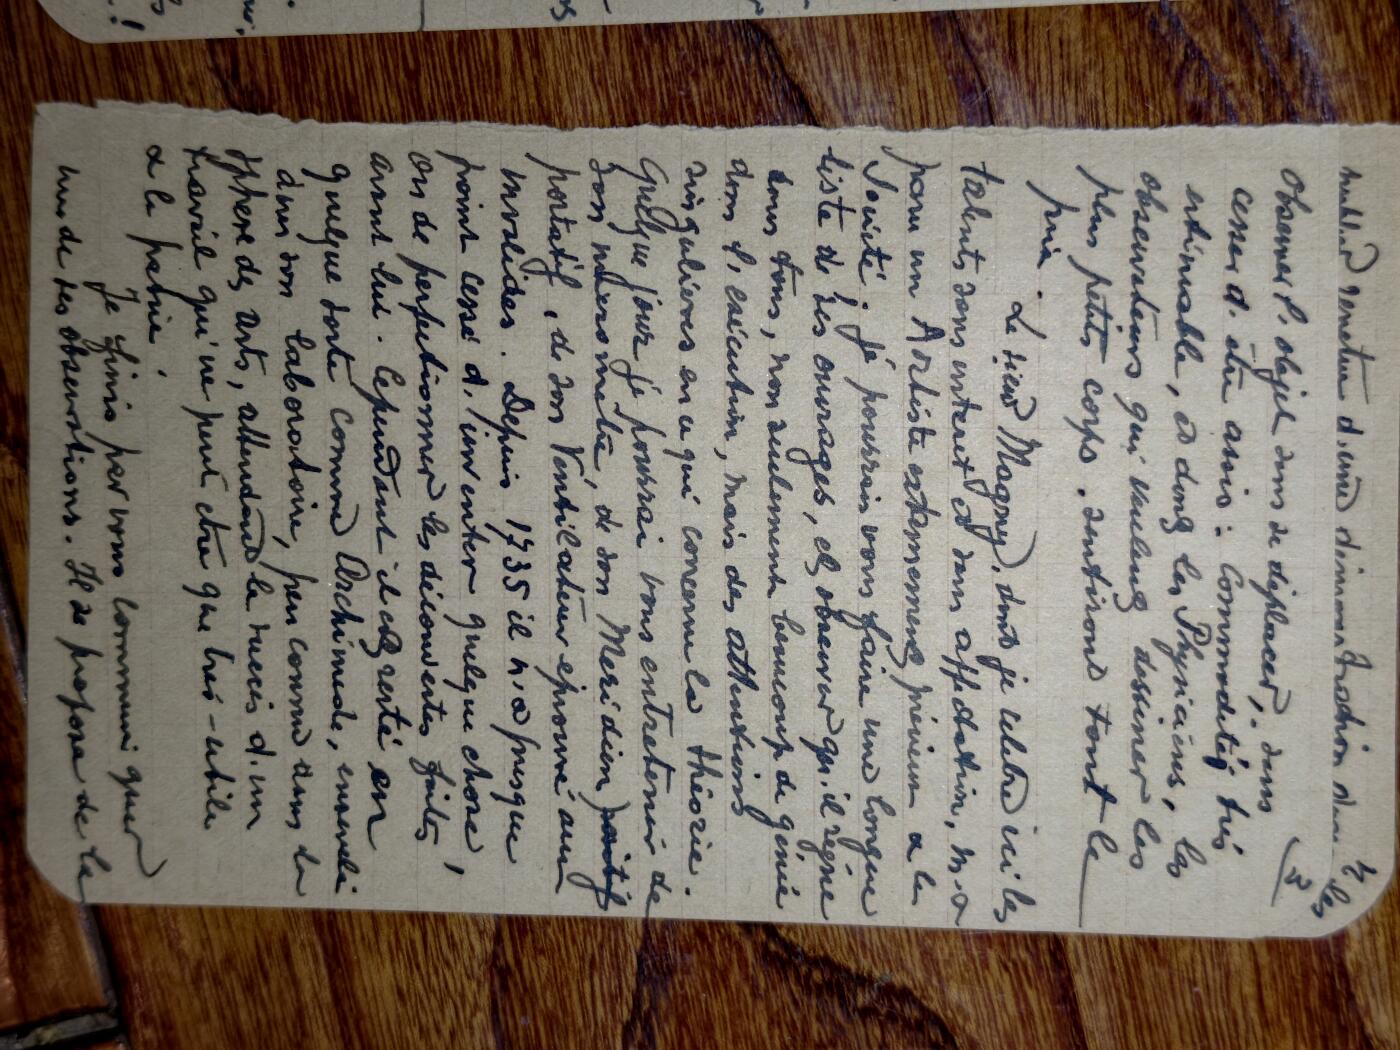 observer l'objet sans se déplacer, sans
cesser d'être assis : Commodité, très
estimable, et dont les Physiciens, les
observateurs qui veulent dessiner les
plus petits corps, sentiront tout le
prix.
Le sieur Magny, dont je célèbre ici les
talents sans intérêt et sans affectation, m'a
paru un Artiste extrêmement précieux à la
Société. Je pourrais vous faire une longue
liste de ses ouvrages, et observer qu'il règne
dans tous, non seulement beaucoup de génie
dans l'exécution, mais des attentions
singulières en ce qui concerne la théorie.
Quelque jour je pourrai vous entretenir de
son micromètre, de son Meridien
portatif, de son Ventilateur éprouvé aux
invalides. Depuis 1735 il n'a presque
point cessé d'inventer quelque chose,
ou de perfectionner les découvertes faites
avant lui. Cependant il est resté en
quelque sorte comme Archimede, enseveli
dans son laboratoire, peu connu dans la
sphere des arts, attendant le succès d'un
travail qui ne peut être que très-utile
a la patrie.
Je finis par vous communiquer
une de ses observations. Il se propose de la